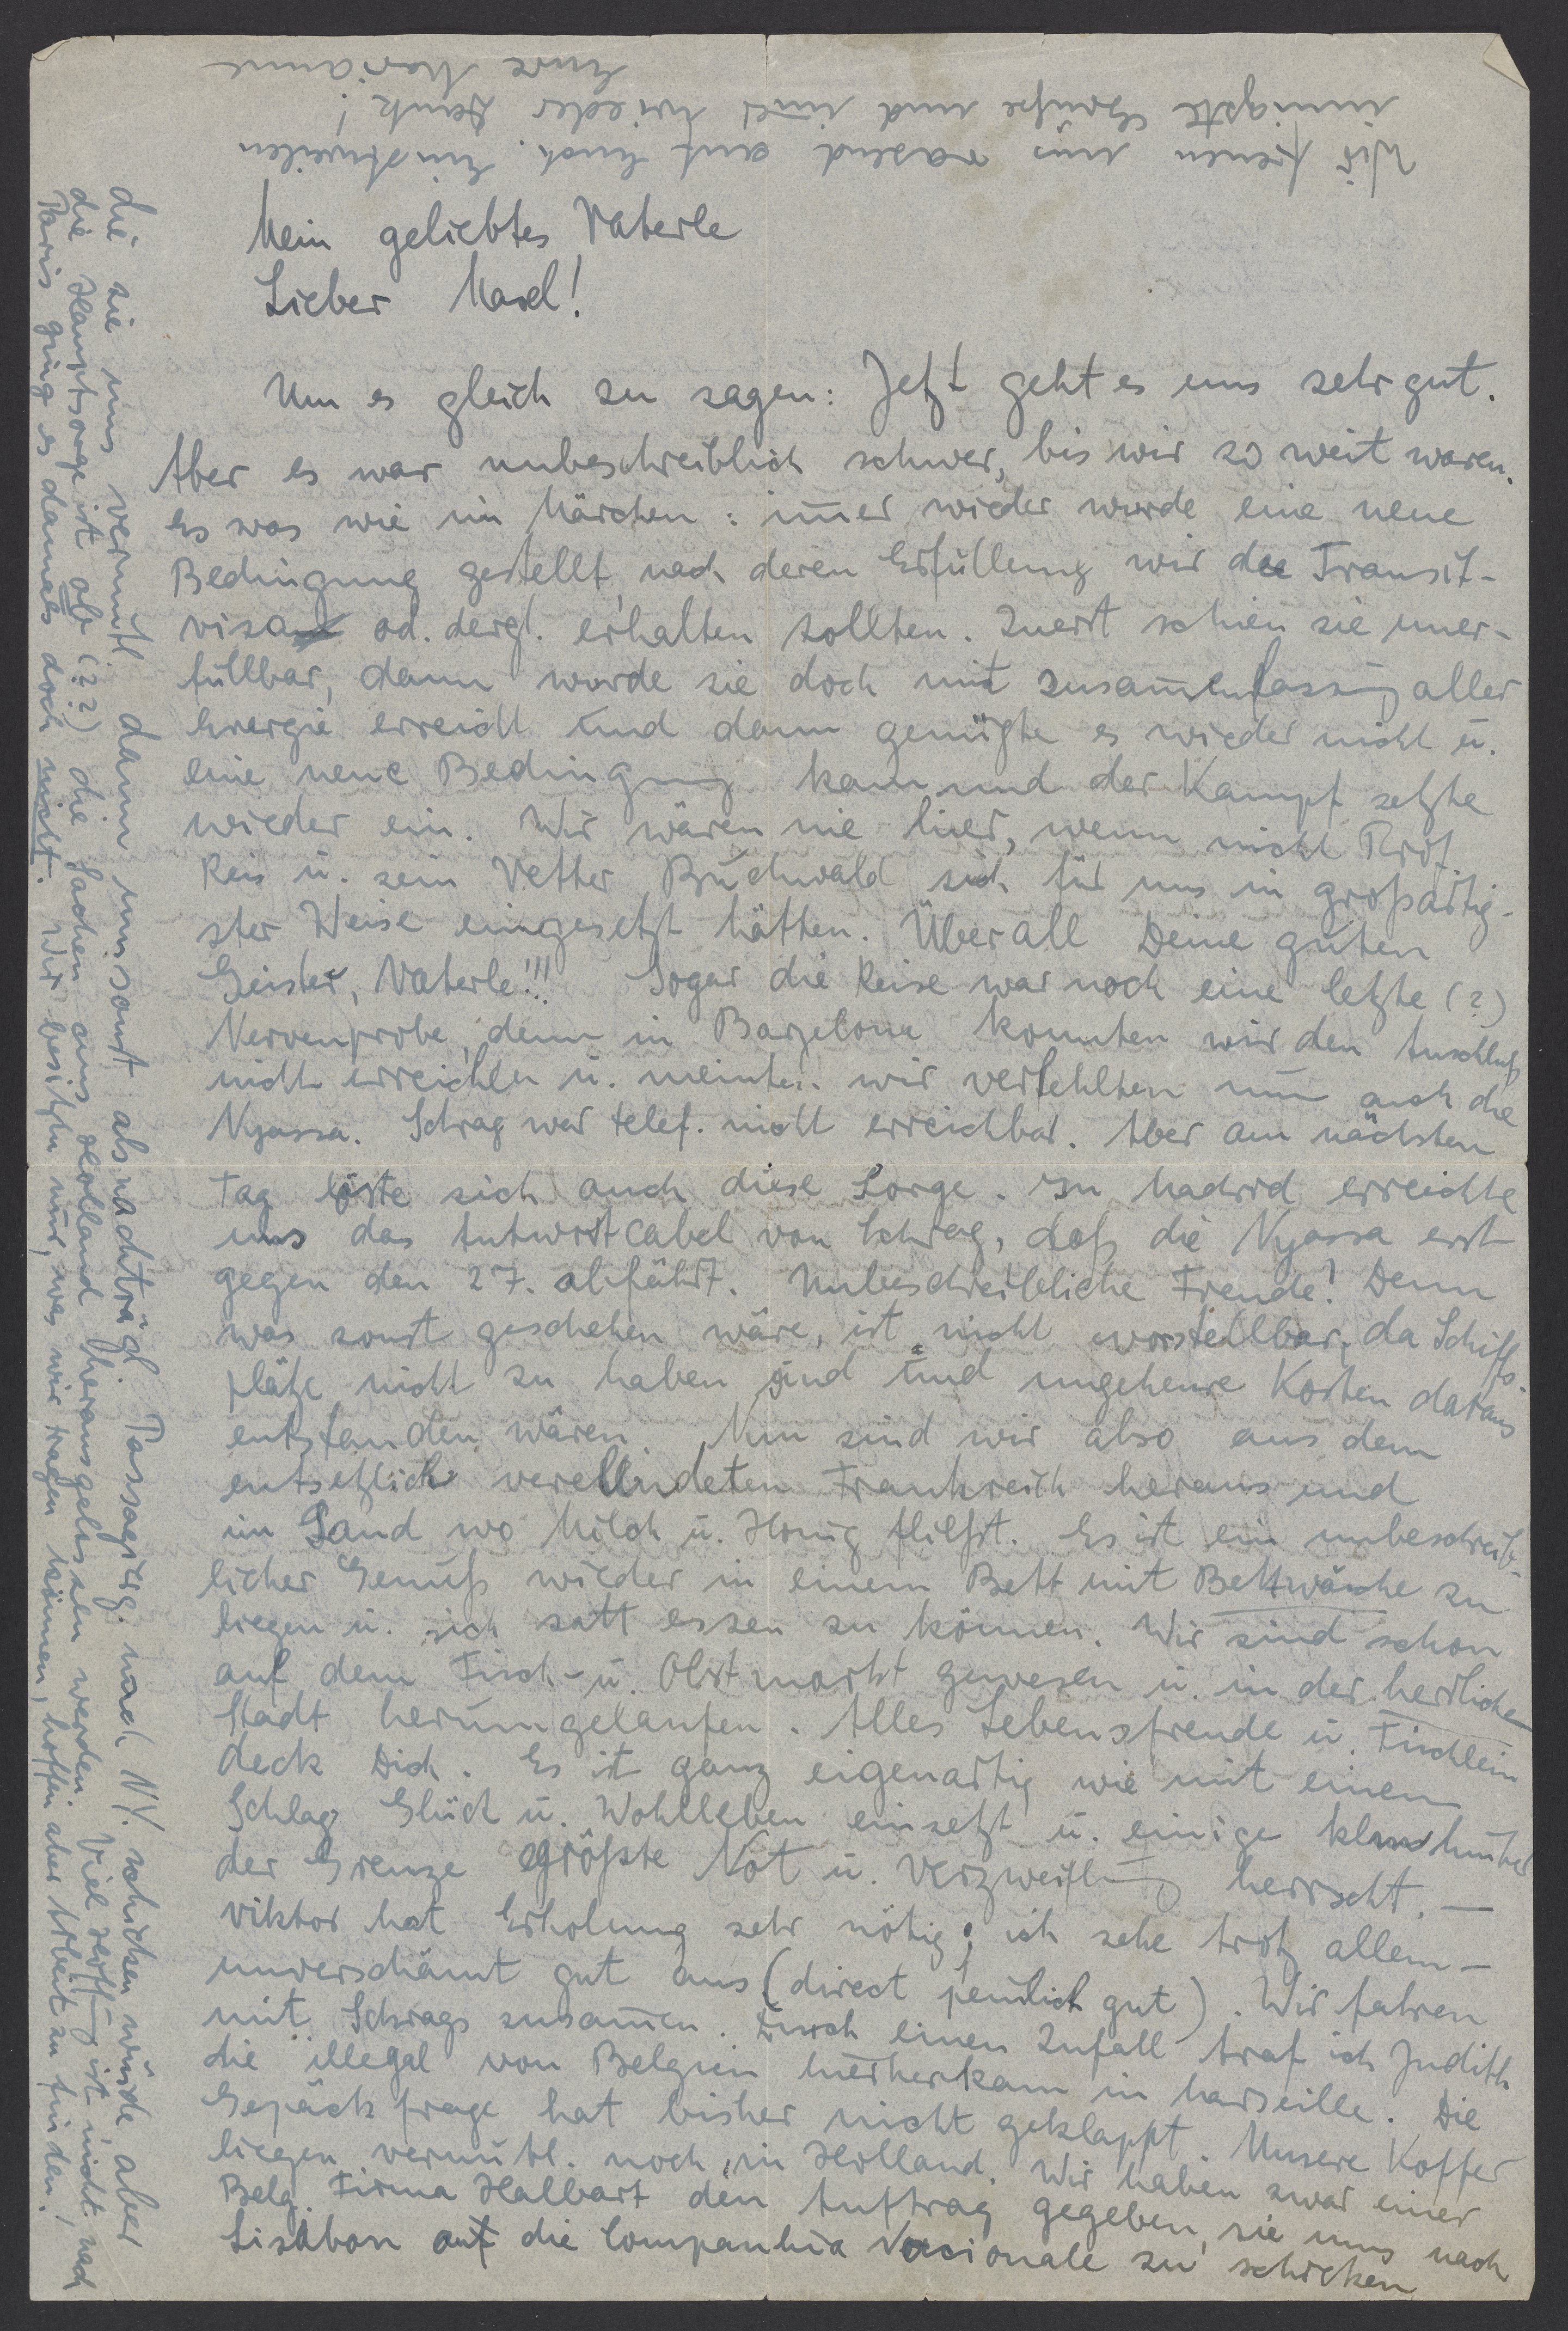 Mein geliebtes Vaterle
Lieber Masel!
Um es gleich zu sagen: Jetzt geht es uns sehr gut.
Aber es war unbeschreiblich schwer, bis wir so weit waren.
Es war wie im Märchen: im̄er wieder wurde eine neue
Bedingung gestellt, nach deren Erfüllung wir die Transit-
visa od. dergl. erhalten sollten. Zuerst schien sie uner-
füllbar, dann wurde sie doch mit Zusam̄enfassung aller
Energie erreicht und dann genügte es wieder nicht u.
eine neue Bedingung kam und der Kampf setzte
wieder ein. Wir wären nie hier, wenn nicht Prof.
Reis u. sein Vetter Buchwald sich für uns in großartig-
ster Weise eingesetzt hätten. Überall Deine guten
Geister, Vaterle!!! Sogar die Reise war noch eine letzte (?)
Nervenprobe, denn in Barzelona konnten wir den Anschluß
nicht erreichen u. meinten wir verfehlten nun auch die
Nyassa. Schrag war telef. nicht erreichbar. Aber am nächsten
Tag löste sich auch diese Sorge. In Madrid erreichte
uns das Antwortcabel von Schrag, daß die Nyassa erst
gegen den 27. abfährt. Unbeschreibliche Freude! Denn
was sonst geschehen wäre, ist nicht vorstellbar, da Schiffs-
plätze nicht zu haben sind und ungeheure Kosten daraus
entstanden wären. Nun sind wir also aus dem
entsetzlich verelendeten Frankreich heraus und
im Land wo Milch u. Honig fließt. Es ist ein unbeschreib-
licher Genuß wieder in einem Bett mit Bettwäsche zu
liegen u. sich satt essen zu können. Wir sind schon
auf dem Fisch- u. Obstmarkt gewesen u. in der herrlichen
Stadt herumgelaufen. Alles Lebensfreude u. Tischlein
deck Dich. Es ist ganz eigenartig wie mit einem
Schlag Glück u. Wohlleben einsetzt u. einige km hinter
der Grenze größte Not u. Verzweiflung herrscht. —
Viktor hat Erholung sehr nötig; ich sehe trotz allem –
unverschämt gut aus (direct peinlich gut). Wir fahren
mit Schrags zusam̄en. Durch einen Zufall traf ich Judith
die illegal von Belgien hierherkam in Marseille. Die
Gepäckfrage hat bisher nicht geklappt. Unsere Koffer
liegen vermutl. noch in Holland. Wir haben zwar einer
Belg. Firma Halbart den Auftrag gegeben, sie uns nach
Lissabon auf die Companhia Nacionale zu schicken
die sie uns vermutl. dann umsonst als nachträgl. Passagierg. nach NY. schicken würde aber
die Hauptsorge ist ob (??) die Sachen aus Holland herausgelassen werden. Viel Hoffnung ist nicht, nach
Paris ging es damals doch nicht. Wir besitzen nur, was wir tragen können, hoffen aber Arbeit zu finden.
Wir freuen uns rasend auf Euch. Einstweilen
innigste Grüße und im̄er wieder Dank!
Eure Marianne